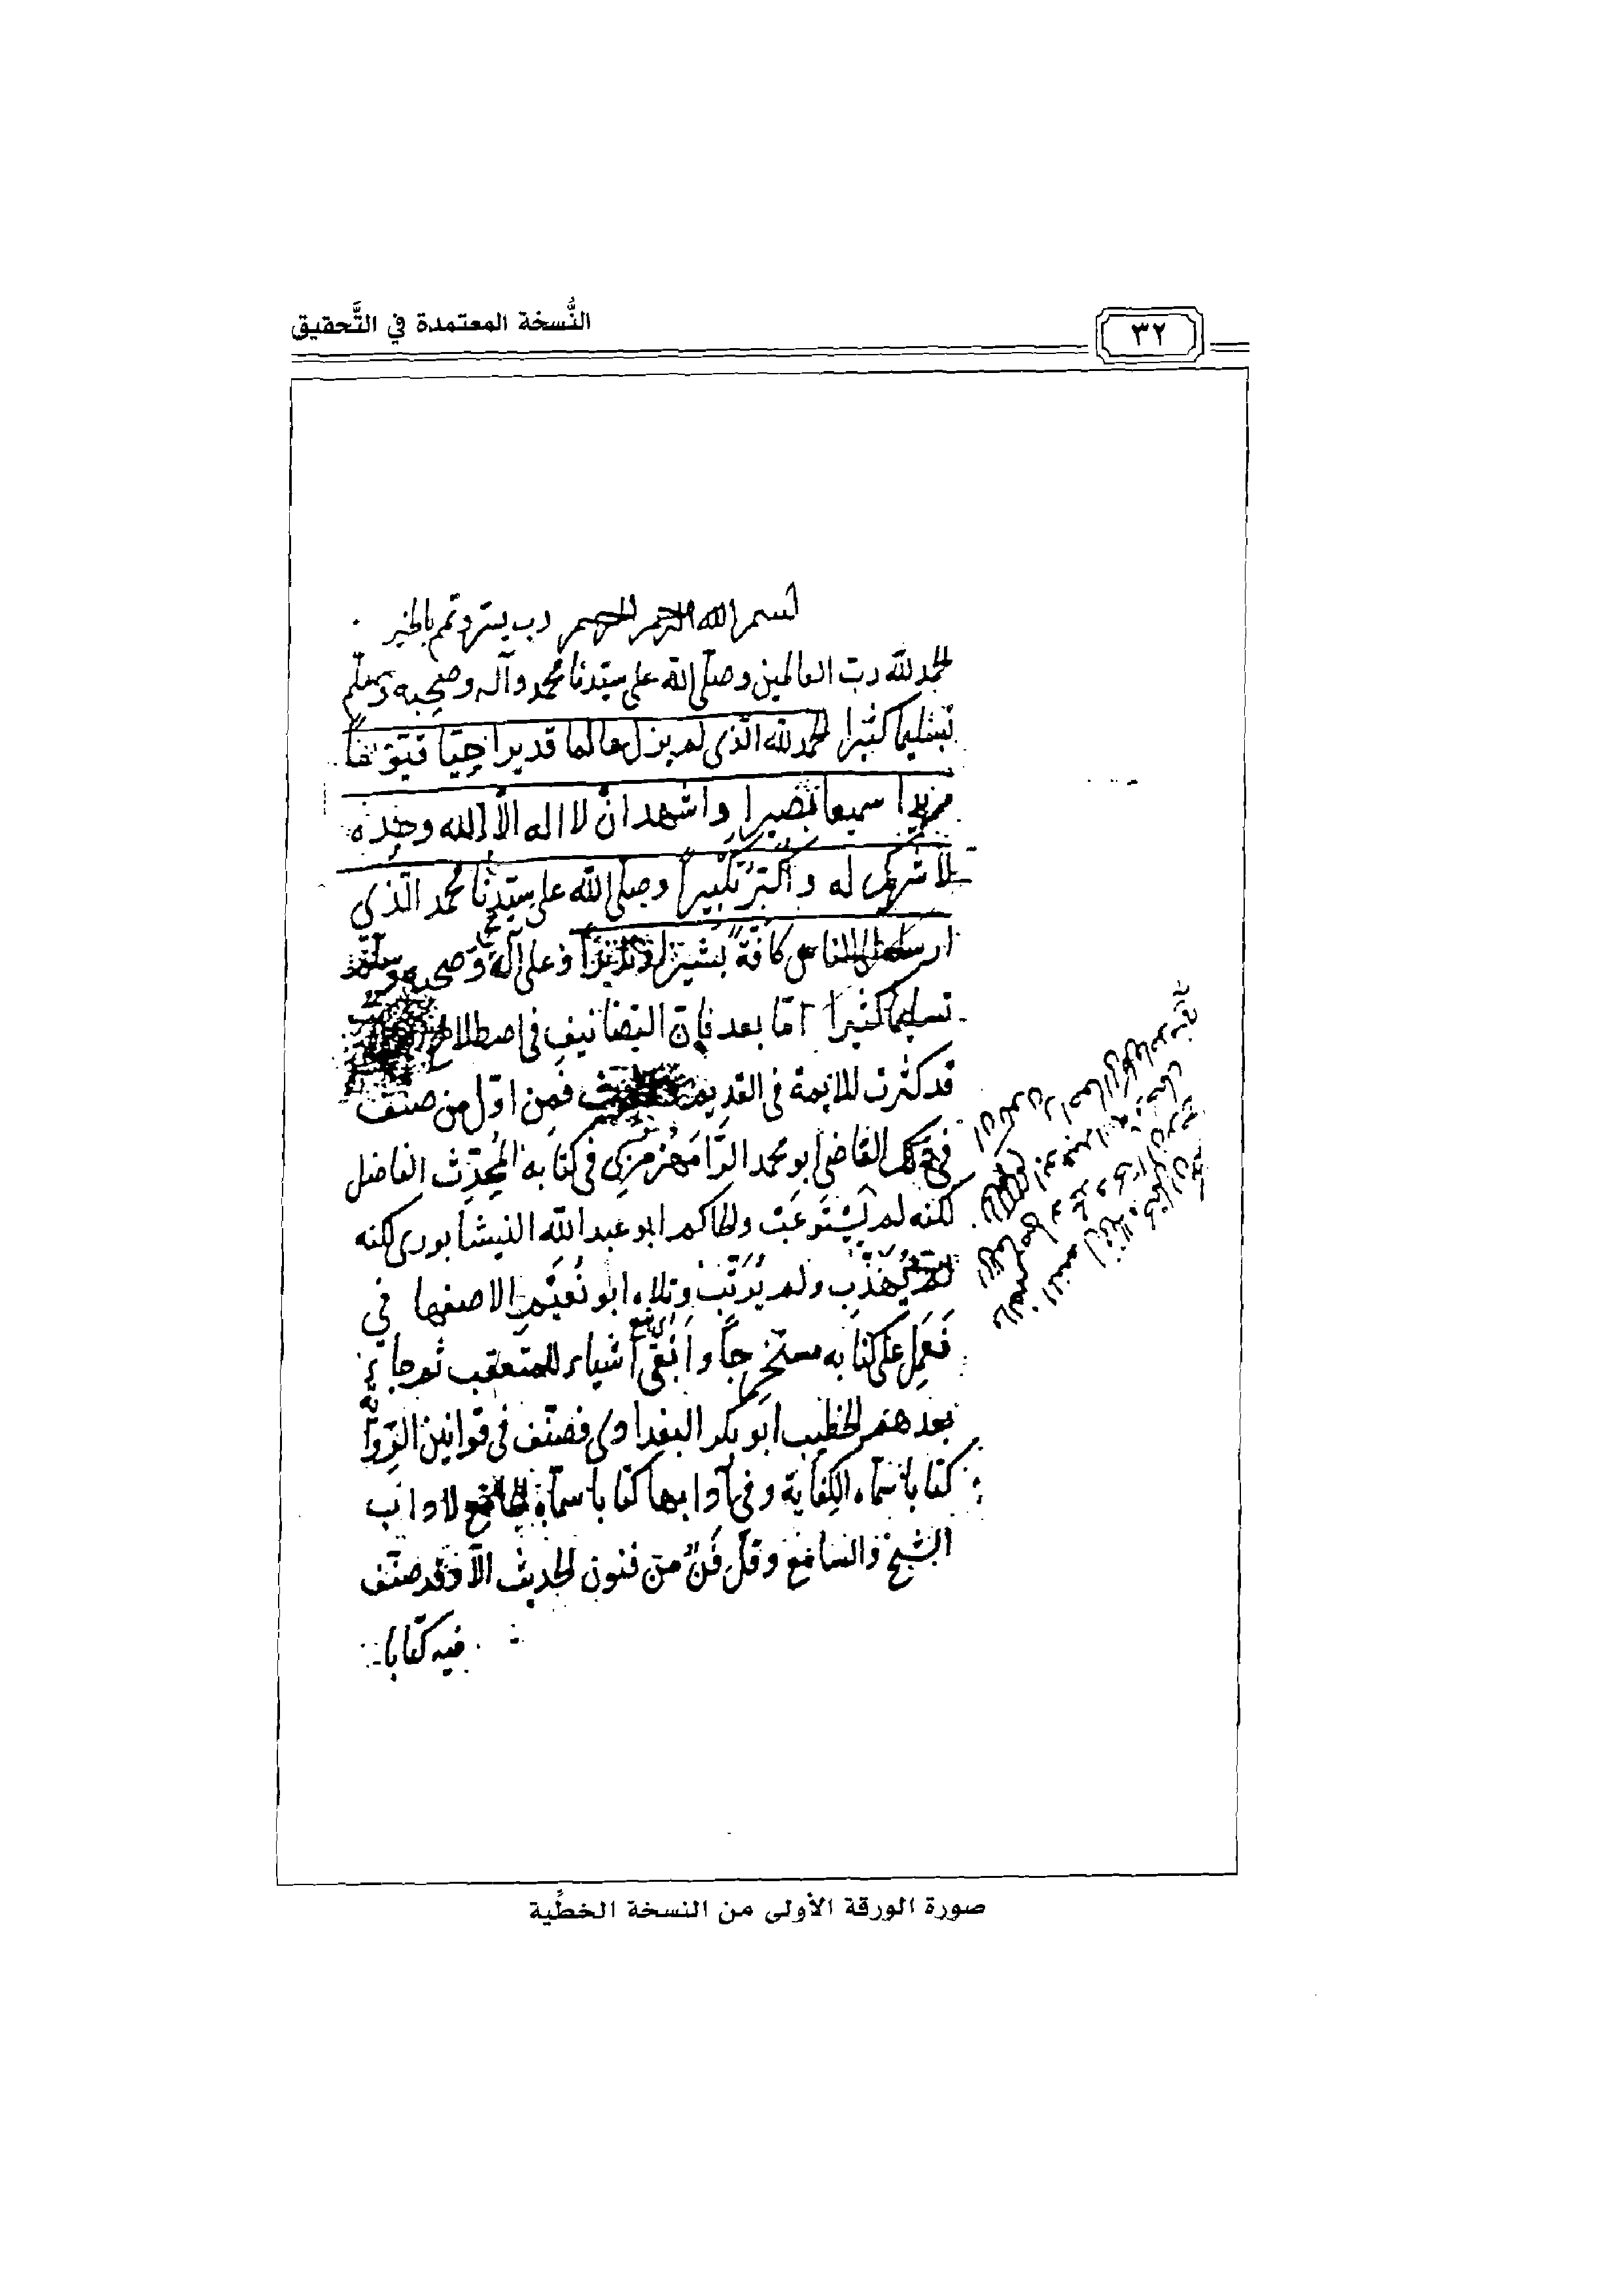 النُّسخة المعتمدة في التَّحقيق
٣٢
بسم الله الرحمن الرحيم رب يسر وتمم بالخير
الحمد لله رب العالمين وصلّى الله على سيّدنا محمد وآله وصحبه وسلم
تسليما كثيرا الحمد لله الّذى لم يزل عالما قديرا حيّا قيّوما
مريدا سميعا بصيرا واشهد ان لا اله الّا الله وحده
لا شريك له واكبّره تكبيرا وصلّى الله على سيّدنا محمد الّذي
ارسله الى الناس كافّة بشيرا ونذيرا وعلى آله وصحبه وسلّم
تسليما كثيرا امّا بعد فإنّ التصانيف فى اصطلاح
قد كثرت للائمة فى القديم فمن اوّل من صنّف
فى ذلك القاضى ابو محمد الرّامَهُرمزي فى كتابه المُحدِّث الفاضل
لكنه لم يستوعب والحاكم ابو عبد الله النيشابورى لكنه
لم يُهذّب ولم يُرَتّب وتلاه ابو نُعَيم الاصفهانى
فَعَمِل على كتابه مستخرجاً وابقى اشياء للمتعقب ثم جاء
بعدهم الخطيب ابو بكر البغدادى فصنّف فى قوانين الرّواية
كتابا سمّاه الكفاية وفى آدابها كتابا سمّاه الجامع لاداب
الشيخ والسامع وقلّ فنّ من فنون الحديث الّا وقد صنّف
فيه كتابا
صورة الورقة الأولى من النسخة الخطِّية